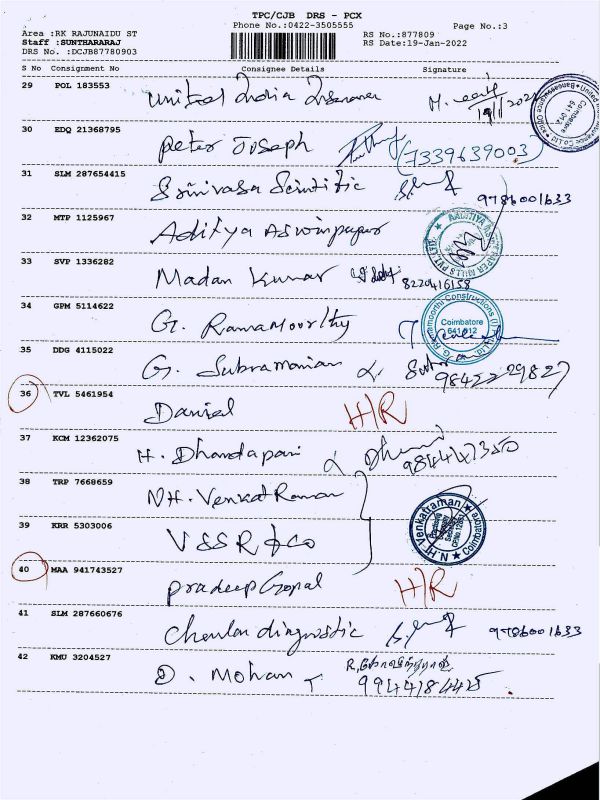 TPC/CJB DRS - PCX
Phone No.:0422-3505555 Page No.:3
Area :RK RAJUNAIDU ST RS No.:877809
Staff :SUNTHARARAJ RS Date:19-Jan-2022
DRS No. :DCJB87780903
S No Consignment No Consignee Details Signature
29 POL 183553 United India Insurance
30 EDQ 21368795 Peter Joseph (7339639003)
31 SLM 287654415 Srinivasa Scientific 9786001633
32 MTP 1125967 Aditya
33 SVP 1336282 Madan Kumar 8220416158
34 GPM 5114622 G. Ramamoorthy Coimbatore 641 012
35 DDG 4115022 G. Subramanian 9842229827
36 TVL 5461954 Daniel H/R
37 KCM 12362075 H. Dhandapani
38 TRP 7668659 NH. VenkatRaman
39 KRR 5303006 VSSR & Co N.H. Venkatraman Coimbatore
40 MAA 941743527 Pradeep Gopal H/R
41 SLM 287660676 diagnostic 9786001633
42 KMU 3204527 D. Mohan 9944184425